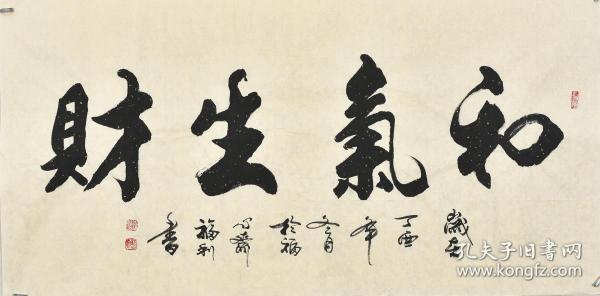 和氣生財
歲在
丁酉
年
冬月
於福
心齋
福利
書
孔夫子旧书网
www.kongfz.com